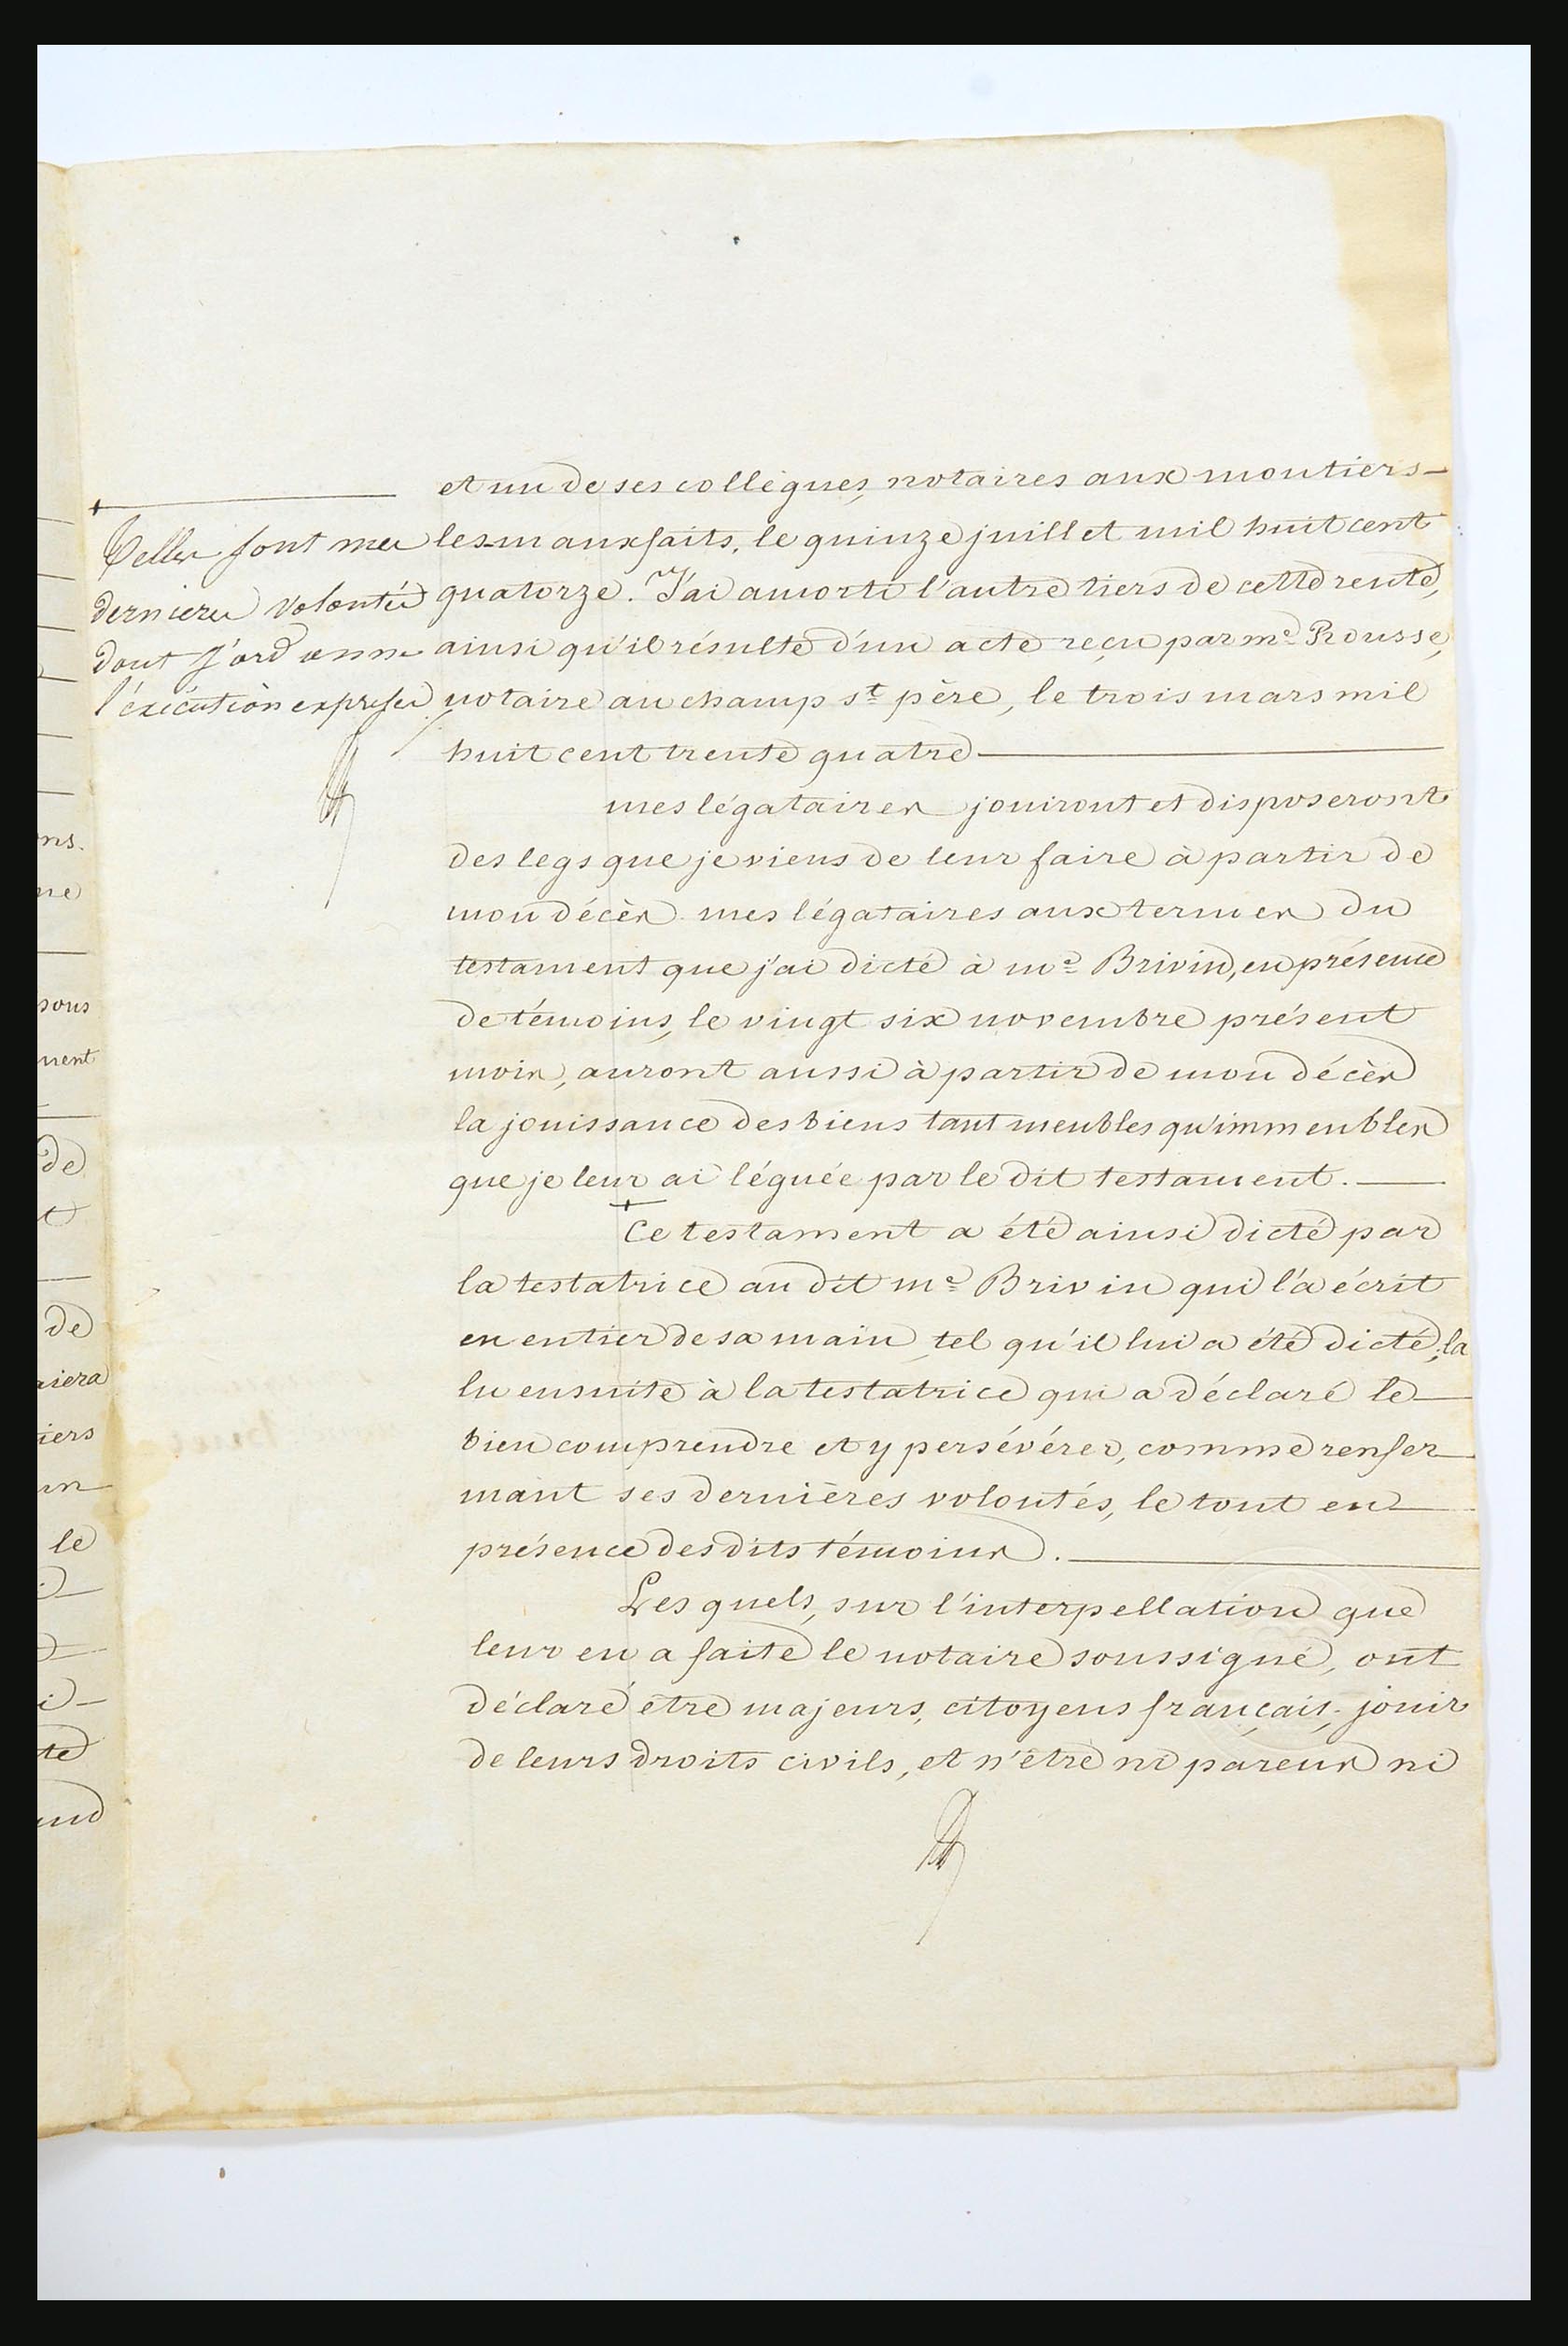 et un de ses collègues, notaires aux moutiers-
les-mauxfaits, le quinze juillet mil huit cent
quatorze. J'ai amorti l'autre tiers de cette rente,
ainsi qu'il résulte d'un acte reçu par me Rousse,
notaire au champ st père, le trois mars mil
huit cent trente quatre
mes légataires jouiront et disposeront
des legs que je viens de leur faire à partir de
mon décès. mes légataires aux termes du
testament que j'ai dicté à me Brivin, en présence
de témoins, le vingt six novembre présent
mois, auront aussi à partir de mon décès
la jouissance des biens tant meubles qu'immeubles
que je leur ai léguée par le dit testament.
+
Ce testament a été ainsi dicté par
la testatrice au dit me Brivin qui l'a écrit
en entier de sa main, tel qu'il lui a été dicté; la
lu ensuite à la testatrice qui a déclaré le
bien comprendre et y persévérer, comme renfer
mant ses dernières volontés, le tout en
présence des dits témoins.
Les quels, sur l'interpellation que
leur en a faite le notaire soussigné, ont
déclaré être majeurs, citoyens français, jouir
de leurs droits civils, et n'être ni parens ni
+
Telles sont mes
dernieres volontés
dont j'ordonne
l'exécution expresse
ns.
ne
sous
ment
de
t
de
aiera
iers
un
le
te